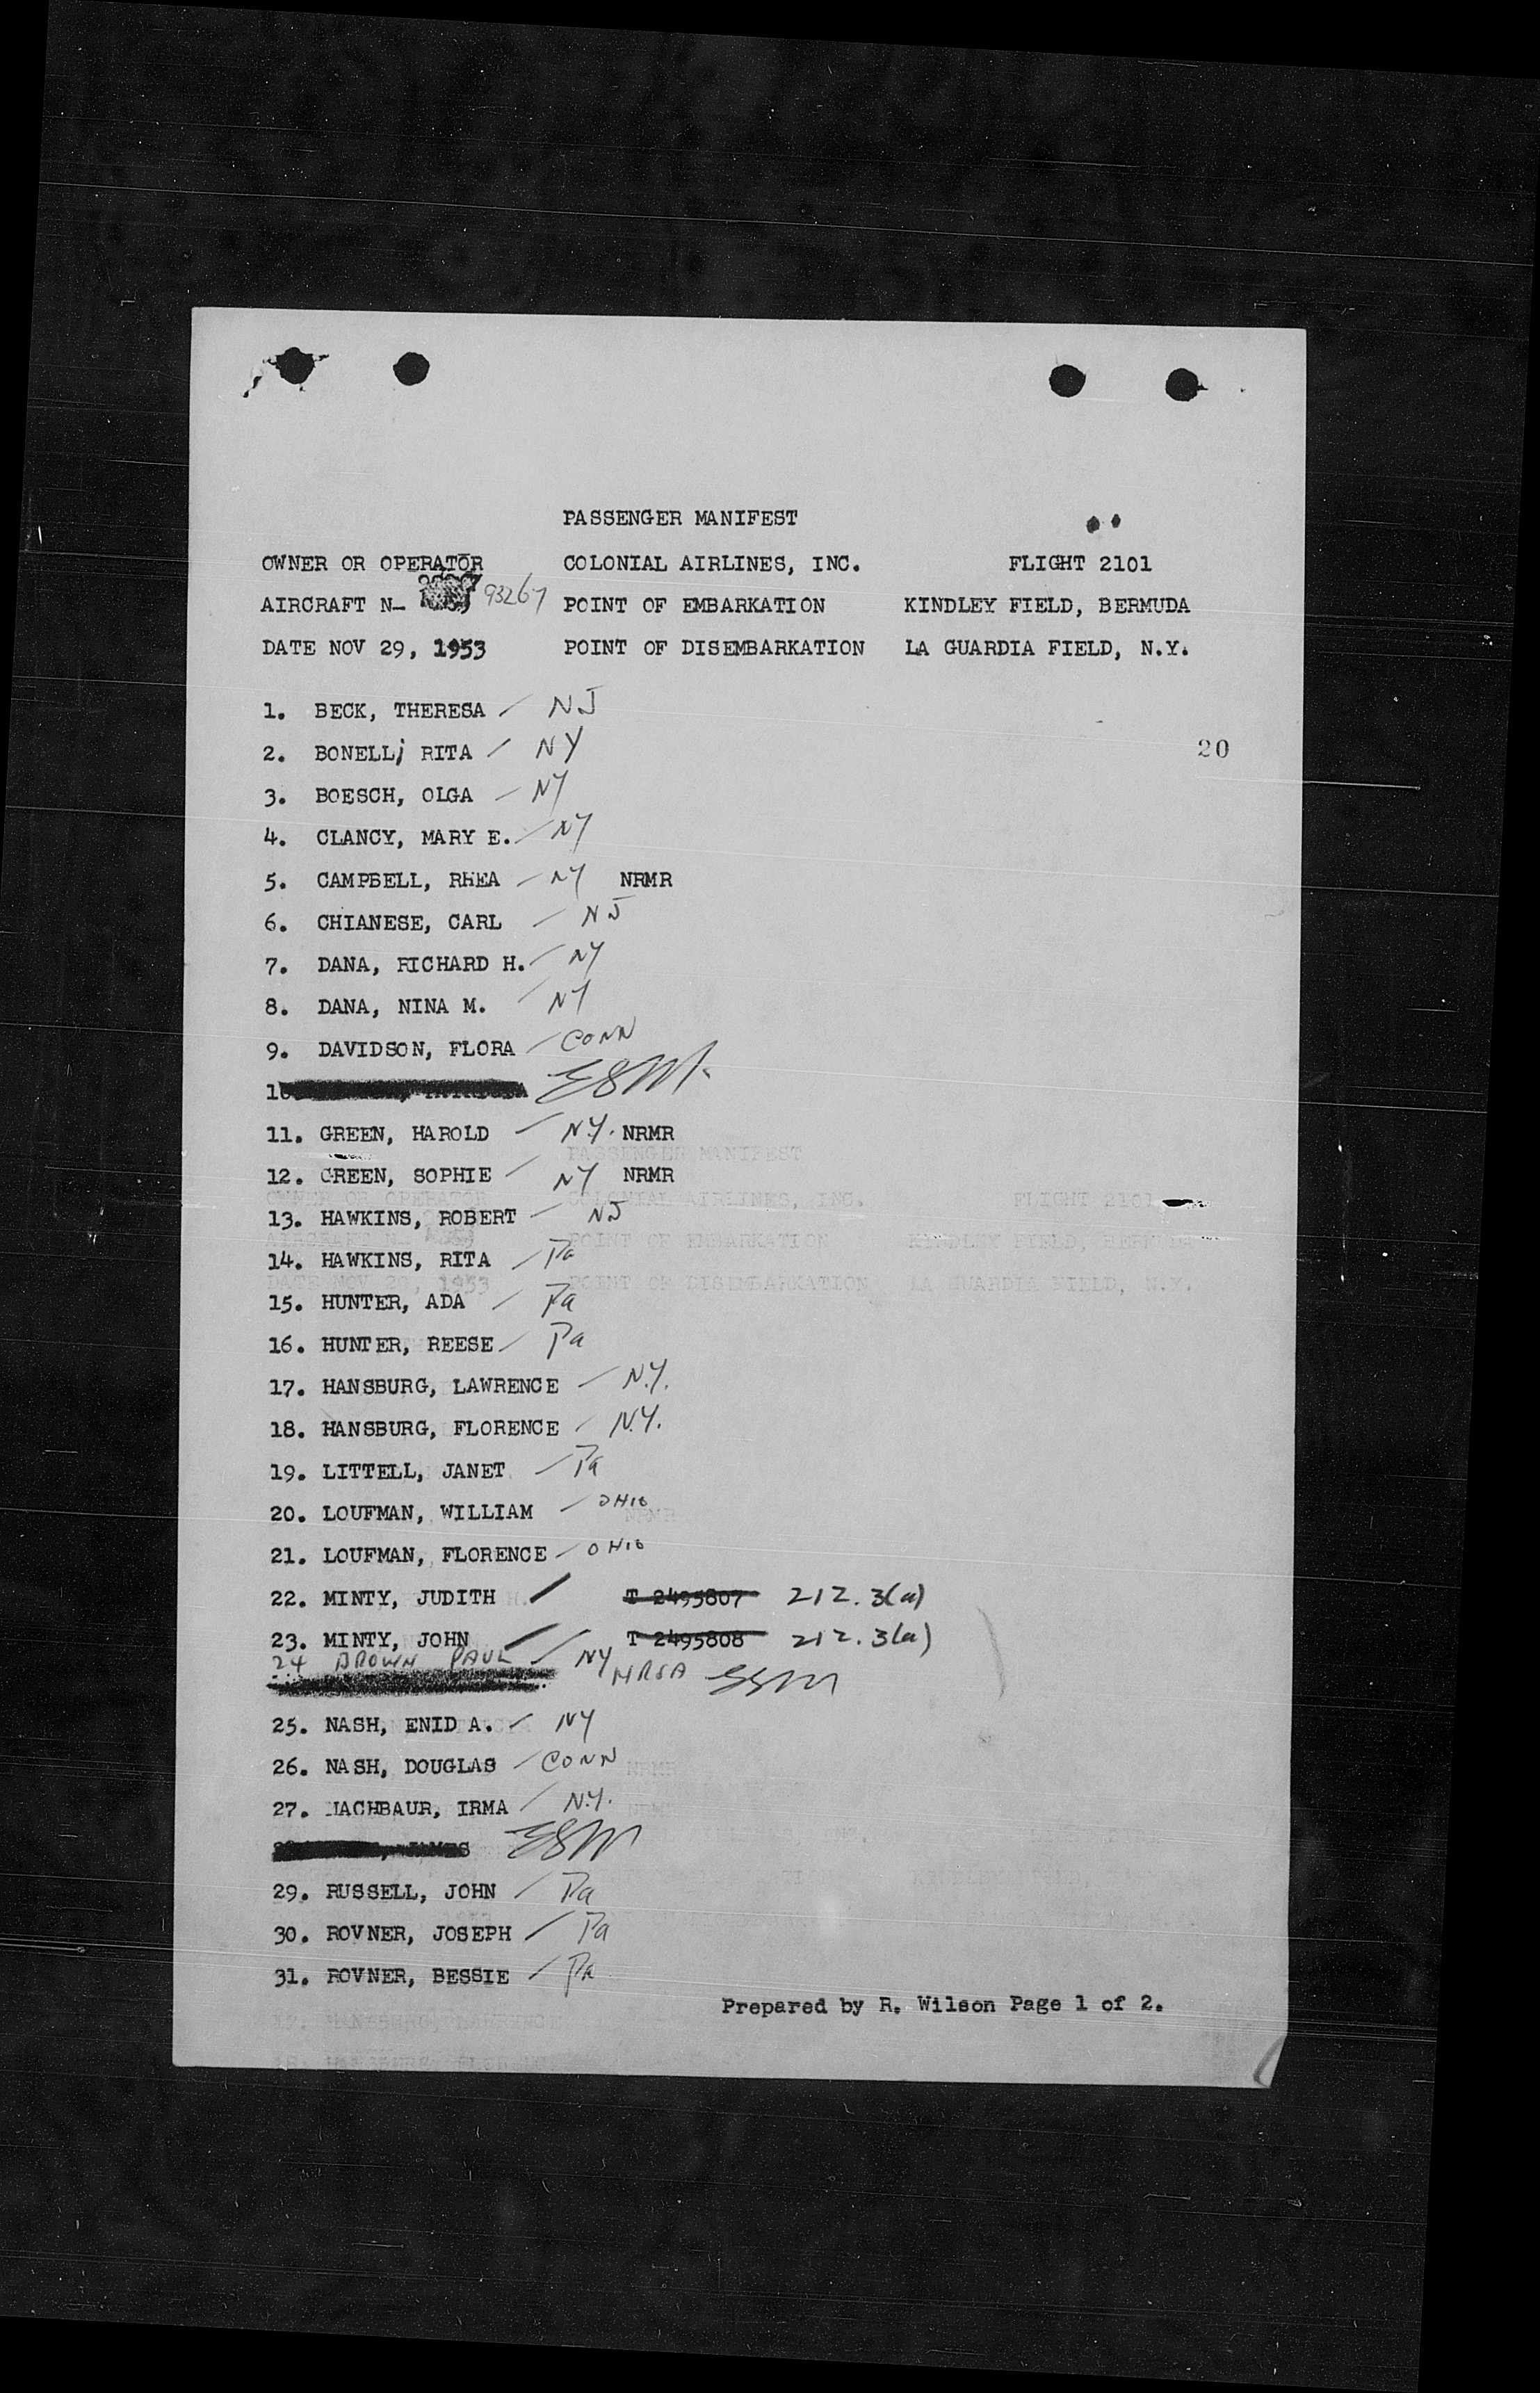 PASSENGER MANIFEST
OWNER OR OPERATOR COLONIAL AIRLINES, INC. FLIGHT 2101
AIRCRAFT N- 93267 POINT OF EMBARKATION KINDLEY FIELD, BERMUDA
DATE NOV 29, 1953 POINT OF DISEMBARKATION LA GUARDIA FIELD, N.Y.
1. BECK, THERESA / NJ
2. BONELLi RITA / NY
20
3. BOESCH, OLGA / NY
4. CLANCY, MARY E. / NY
5. CAMPBELL, RHEA / NY NRMR
6. CHIANESE, CARL / NJ
7. DANA, RICHARD H. / NY
8. DANA, NINA M. / NY
9. DAVIDSON, FLORA / CONN
ESM
11. GREEN, HAROLD / N.Y. NRMR
12. GREEN, SOPHIE / NY NRMR
13. HAWKINS, ROBERT / NJ
14. HAWKINS, RITA / Pa
15. HUNTER, ADA / Pa
16. HUNTER, REESE / Pa
17. HANSBURG, LAWRENCE / N.Y.
18. HANSBURG, FLORENCE / N.Y.
19. LITTELL, JANET / Pa
20. LOUFMAN, WILLIAM / OHIO
21. LOUFMAN, FLORENCE / OHIO
22. MINTY, JUDITH / T 2495807 212.3(a)
23. MINTY, JOHN / T 2495808 212.3(a)
24 BROWN PAUL / NY ESM
25. NASH, ENID A. / NY
26. NASH, DOUGLAS / CONN
27. NACHBAUR, IRMA / N.Y.
JAMES ESM
29. RUSSELL, JOHN / Pa
30. ROVNER, JOSEPH / Pa
31. ROVNER, BESSIE / Pa
Prepared by R. Wilson Page 1 of 2.